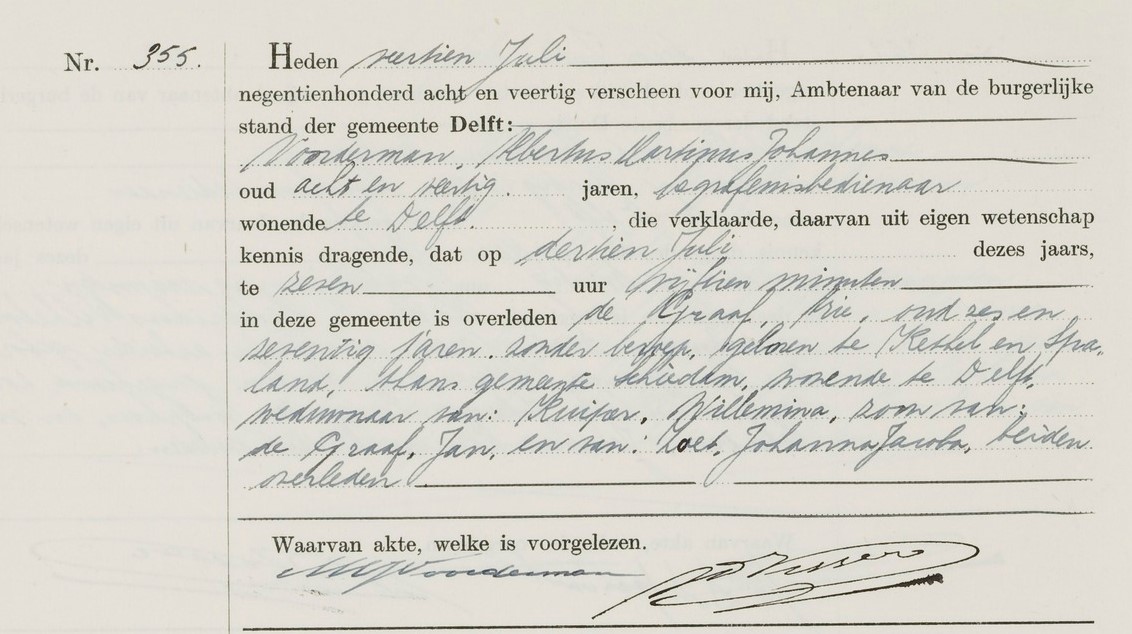 Nr. 355. Heden veertien Juli
negentienhonderd acht en veertig verscheen voor mij, Ambtenaar van de burgerlijke
stand der gemeente Delft:
Voorderman, Albertus Martinus Johannes
oud acht en veertig jaren, begrafenisbedienaar
wonende te Delft. , die verklaarde, daarvan uit eigen wetenschap
kennis dragende, dat op dertien Juli dezes jaars,
te zeven uur vijftien minuten
in deze gemeente is overleden de Graaf, Arie, oud zes en
zeventig jaren, zonder beroep, geboren te Kethel en Spa-
land, thans gemeente Schiedam, wonende te Delft,
weduwnaar van: Kuiper, Willemina, zoon van:
de Graaf, Jan, en van: Loeb, Johanna Jacoba, beiden
overleden
Waarvan akte, welke is voorgelezen.
AMJ Voorderman